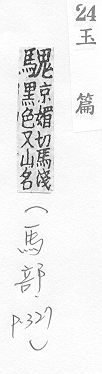 24
玉篇
騩京媚切馬淺
黑色又山名
(馬部, p.327)